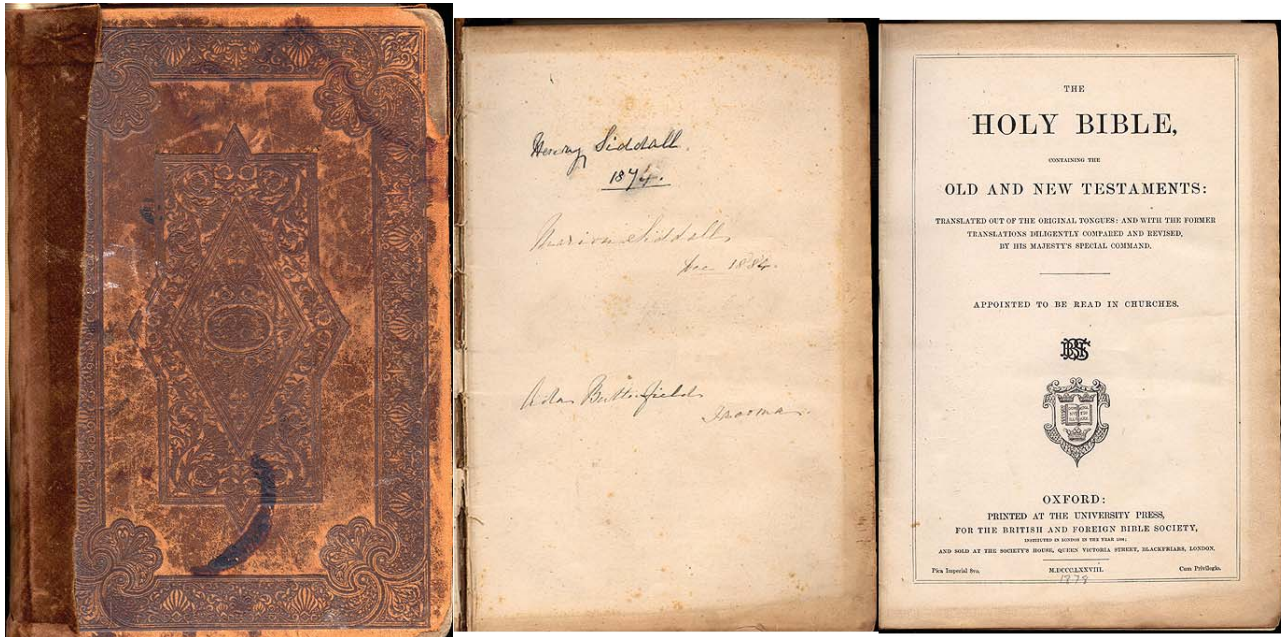 Henry Siddall.
1874.
Marion Siddall
Dec 1884.
Ada Butterfield
THE
HOLY BIBLE,
CONTAINING THE
OLD AND NEW TESTAMENTS:
TRANSLATED OUT OF THE ORIGINAL TONGUES: AND WITH THE FORMER
TRANSLATIONS DILIGENTLY COMPARED AND REVISED,
BY HIS MAJESTY'S SPECIAL COMMAND.
APPOINTED TO BE READ IN CHURCHES.
OXFORD:
PRINTED AT THE UNIVERSITY PRESS,
FOR THE BRITISH AND FOREIGN BIBLE SOCIETY,
INSTITUTED IN LONDON IN THE YEAR 1804;
AND SOLD AT THE SOCIETY'S HOUSE, QUEEN VICTORIA STREET, BLACKFRIARS, LONDON.
Pica Imperial 8vo. M.DCCC.LXXVIII. Cum Privilegio.
1878